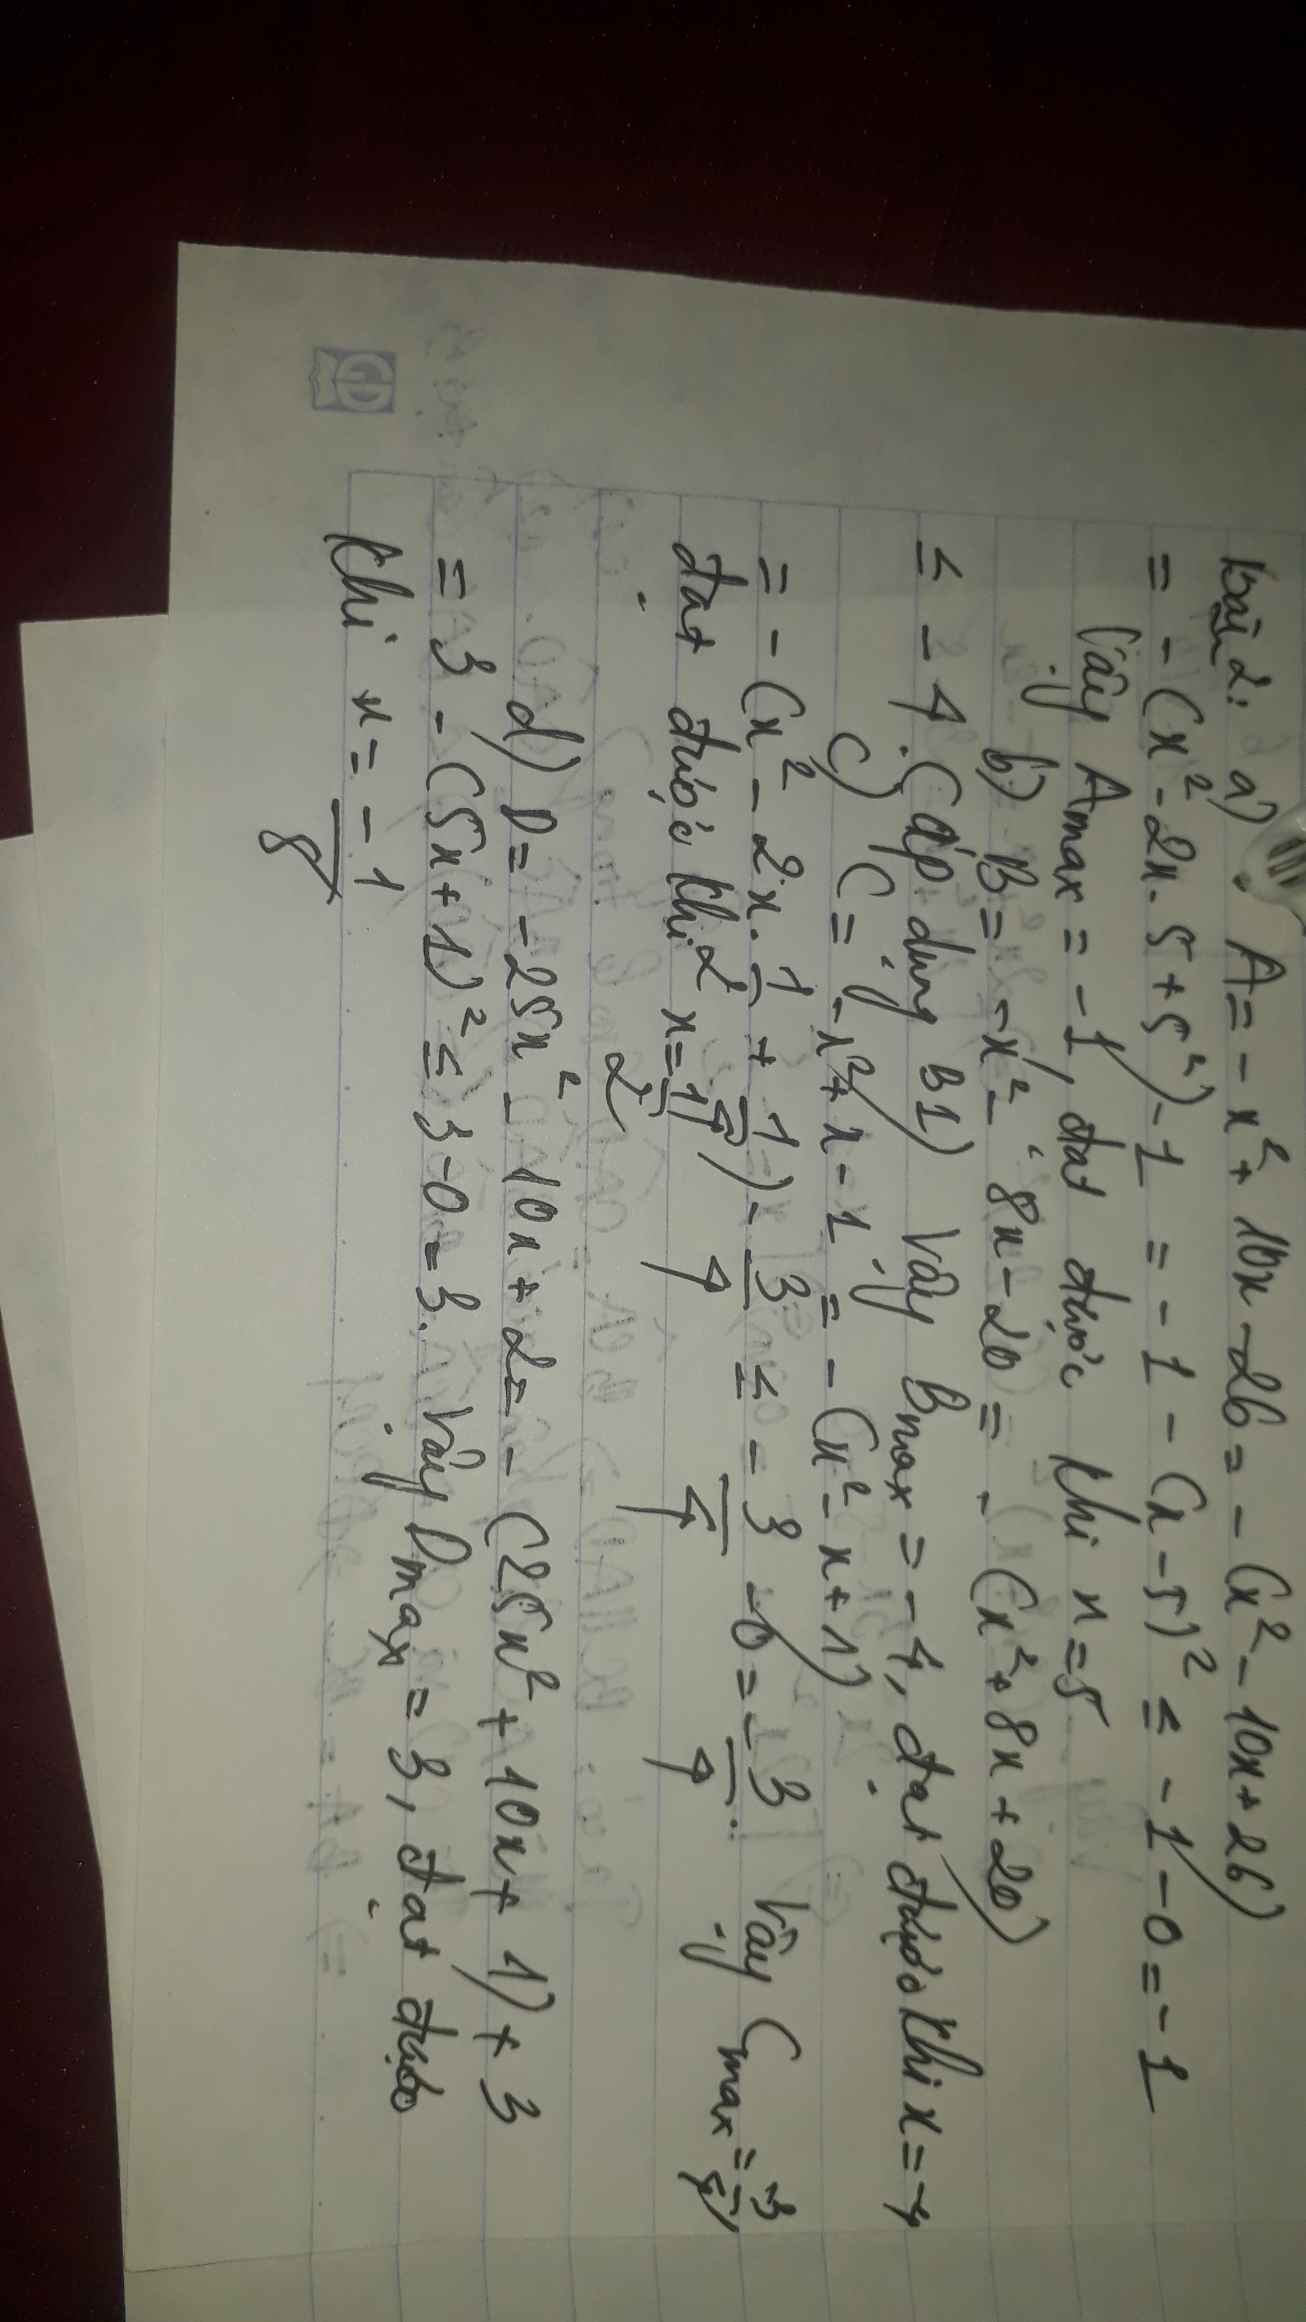 Bài 2: a) A = -x² + 10x - 26 = - (x² - 10x + 26)
= - (x² - 2x. 5 + 5²) - 1 = - 1 - (x - 5)² ≤ - 1 - 0 = - 1
Vậy Amax = - 1, đạt được khi x = 5
b) B = -x² - 8x - 20 = - (x² + 8x + 20)
≤ - 4. (áp dụng B1) Vậy Bmax = - 4, đạt được khi x = -4
c) C = -x² + x - 1 = - (x² - x + 1)
= - (x² - 2x. 1/2 + 1/4) - 3/4 ≤ - 3/4 - 0 = - 3/4. Vậy Cmax = -3/4,
đạt được khi x = 1/2
d) D = -25x² - 10x + 2 = - (25x² + 10x + 1) + 3
= 3 - (5x + 1)² ≤ 3 - 0 = 3. Vậy Dmax = 3, đạt được
khi x = -1/5